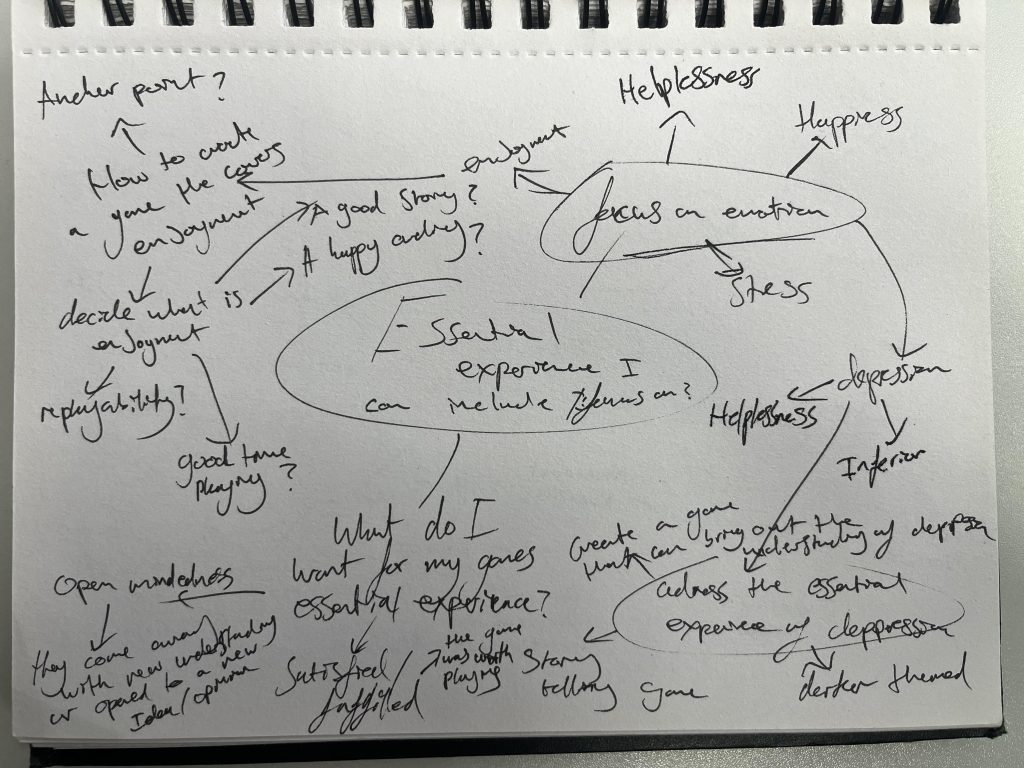 Ancher point?
How to create
a game the covers
enjoyment
decide what is
enjoyment
replayability?
good time
playing ?
A good Story?
A happy ending?
enjoyment
Helplessness
Happiess
focus on emotion
Stress
Essential
experience I
can include / focus on?
depression
Helplessness
Inferior
What do I
want for my games
essential experience?
Open mindedness
they come away
with new understanding
or opened to a new
Idea/opinion
Satisfied/
fulfilled
the game
was worth
playing
Create a game
that can bring out the
understanding of deppression
adress the essential
experience of deppression
Story
telling game
darker themed